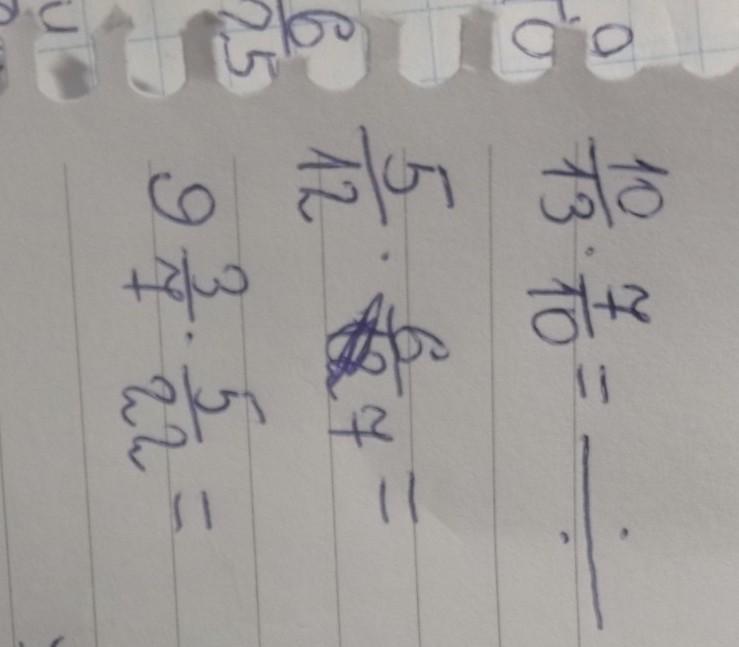 10/13 · 7/10 =
5/12 · 6/7 =
9 3/7 · 5/22 =
6/25